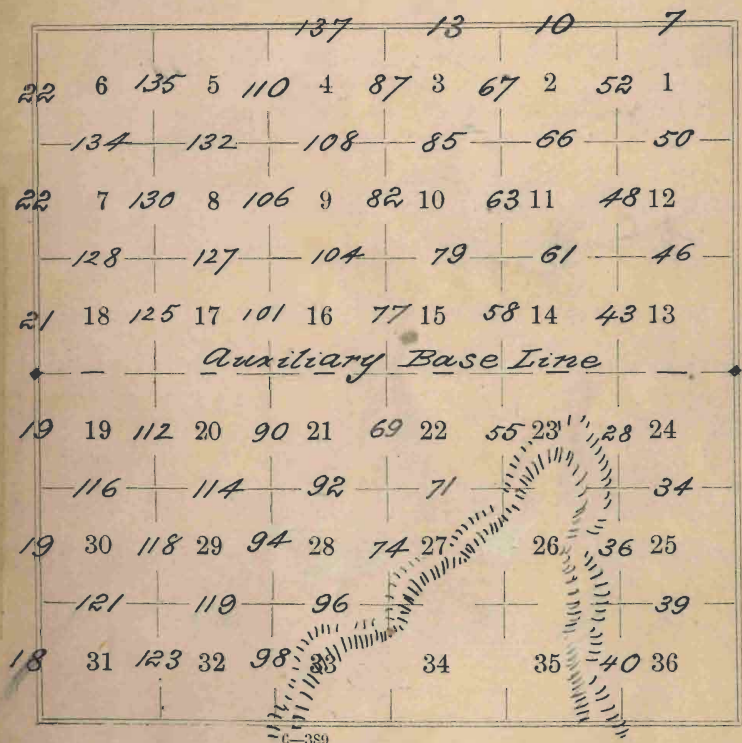 137 13 10 7
22 6 135 5 110 4 87 3 67 2 52 1
134 132 108 85 66 50
22 7 130 8 106 9 82 10 63 11 48 12
128 127 104 79 61 46
21 18 125 17 101 16 77 15 58 14 43 13
Auxiliary Base Line
19 19 112 20 90 21 69 22 55 23 28 24
116 114 92 71 34
19 30 118 29 94 28 74 27 26 36 25
121 119 96 39
18 31 123 32 98 33 34 35 40 36
6—389